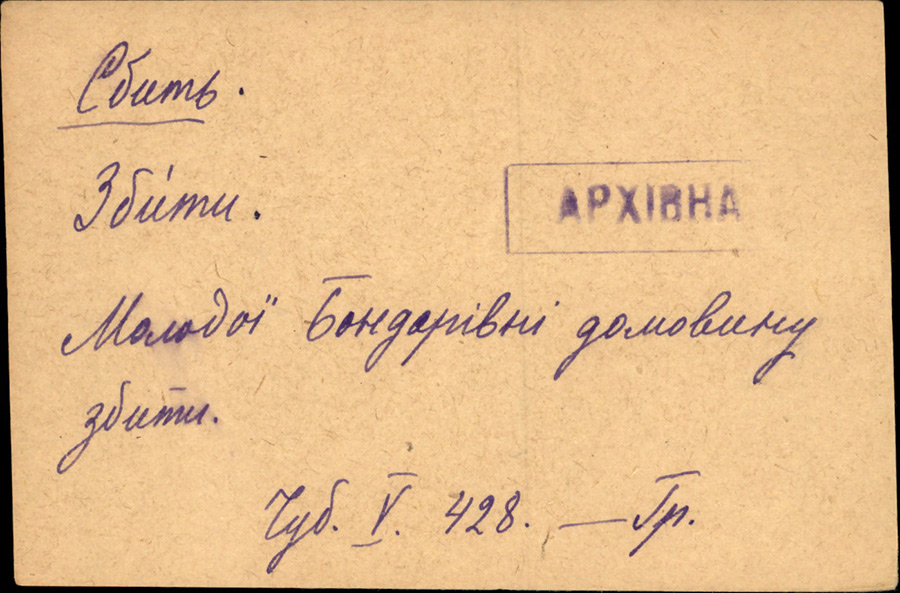 Сбить.
Збити.
АРХІВНА
Молодої Бондарівні домовину
збити.
Чуб. V. 428. — Гр.